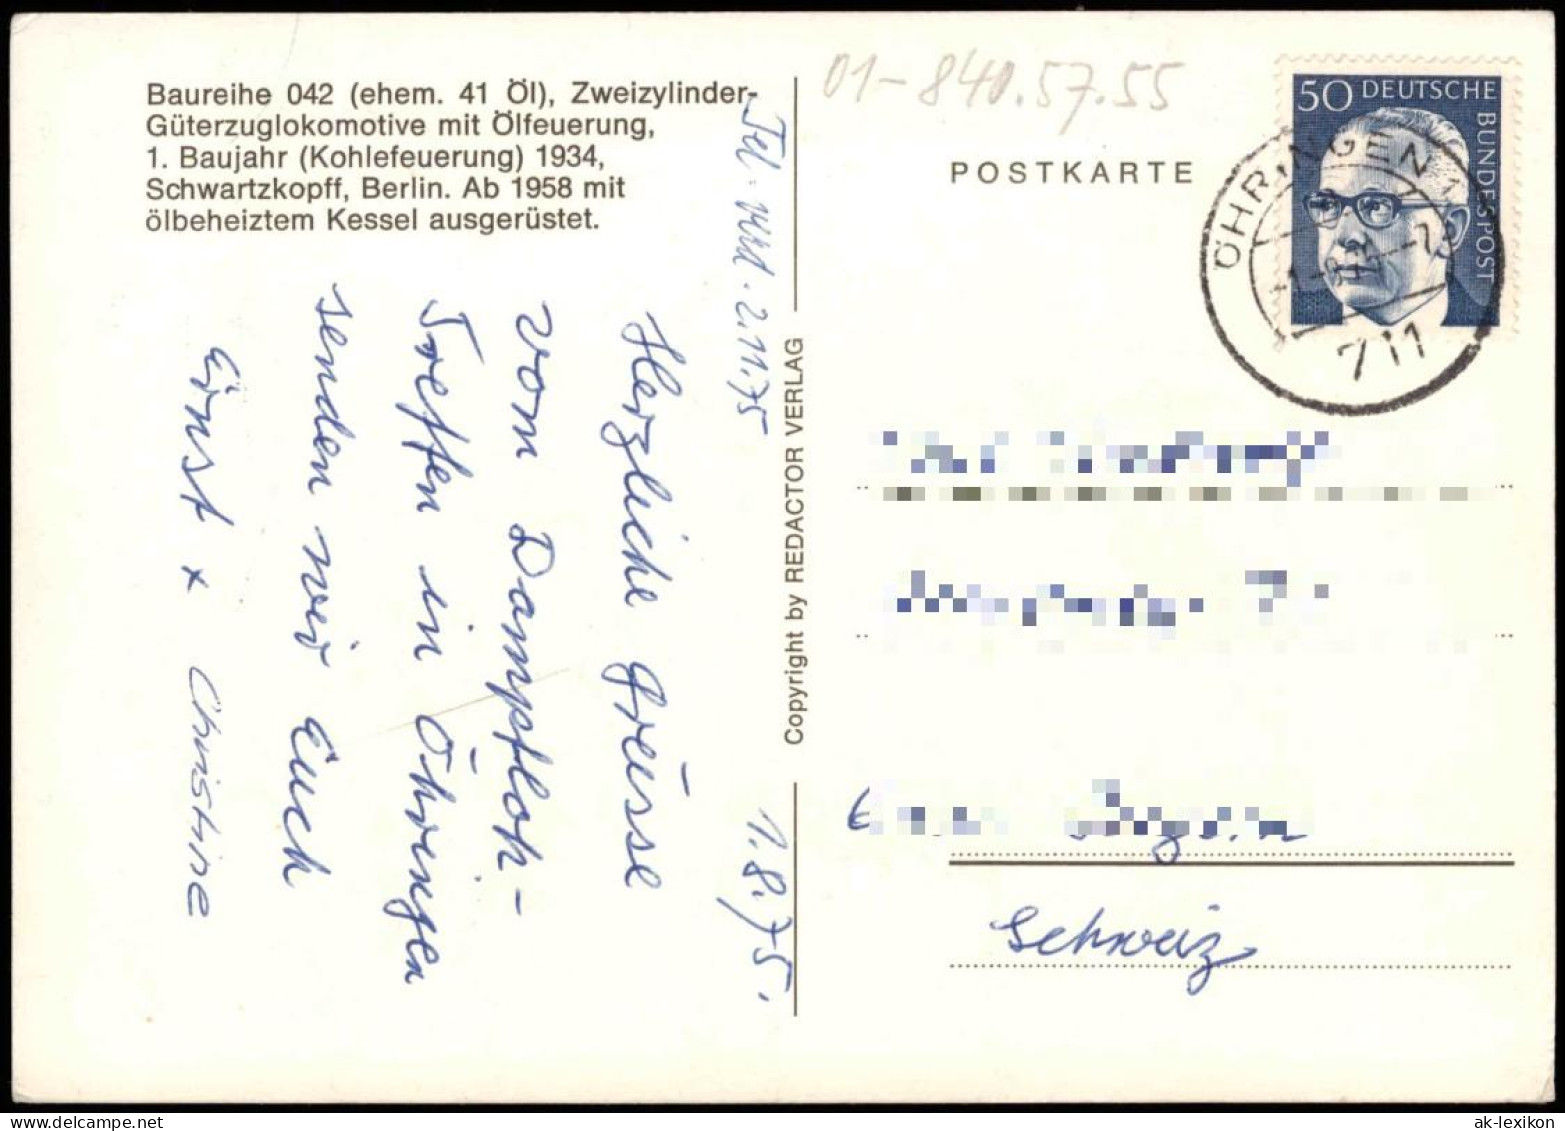 Baureihe 042 (ehem. 41 Öl), Zweizylinder-
Güterzuglokomotive mit Ölfeuerung,
1. Baujahr (Kohlefeuerung) 1934,
Schwartzkopff, Berlin. Ab 1958 mit
ölbeheiztem Kessel ausgerüstet.
1.8.75.
Herzliche Grüsse
vom Dampfloh-
Treffen in Öhringen
senden wir Euch
Ernst + Christine
Tel. 2.11.75
Copyright by REDACTOR VERLAG
01-840.57.55
POSTKARTE
50 DEUTSCHE
BUNDESPOST
ÖHRINGEN 1
711
Schweiz
ak-lexikon